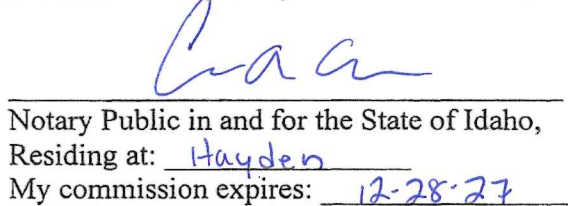 Notary Public in and for the State of Idaho,
Residing at: Hayden
My commission expires: 12-28-27